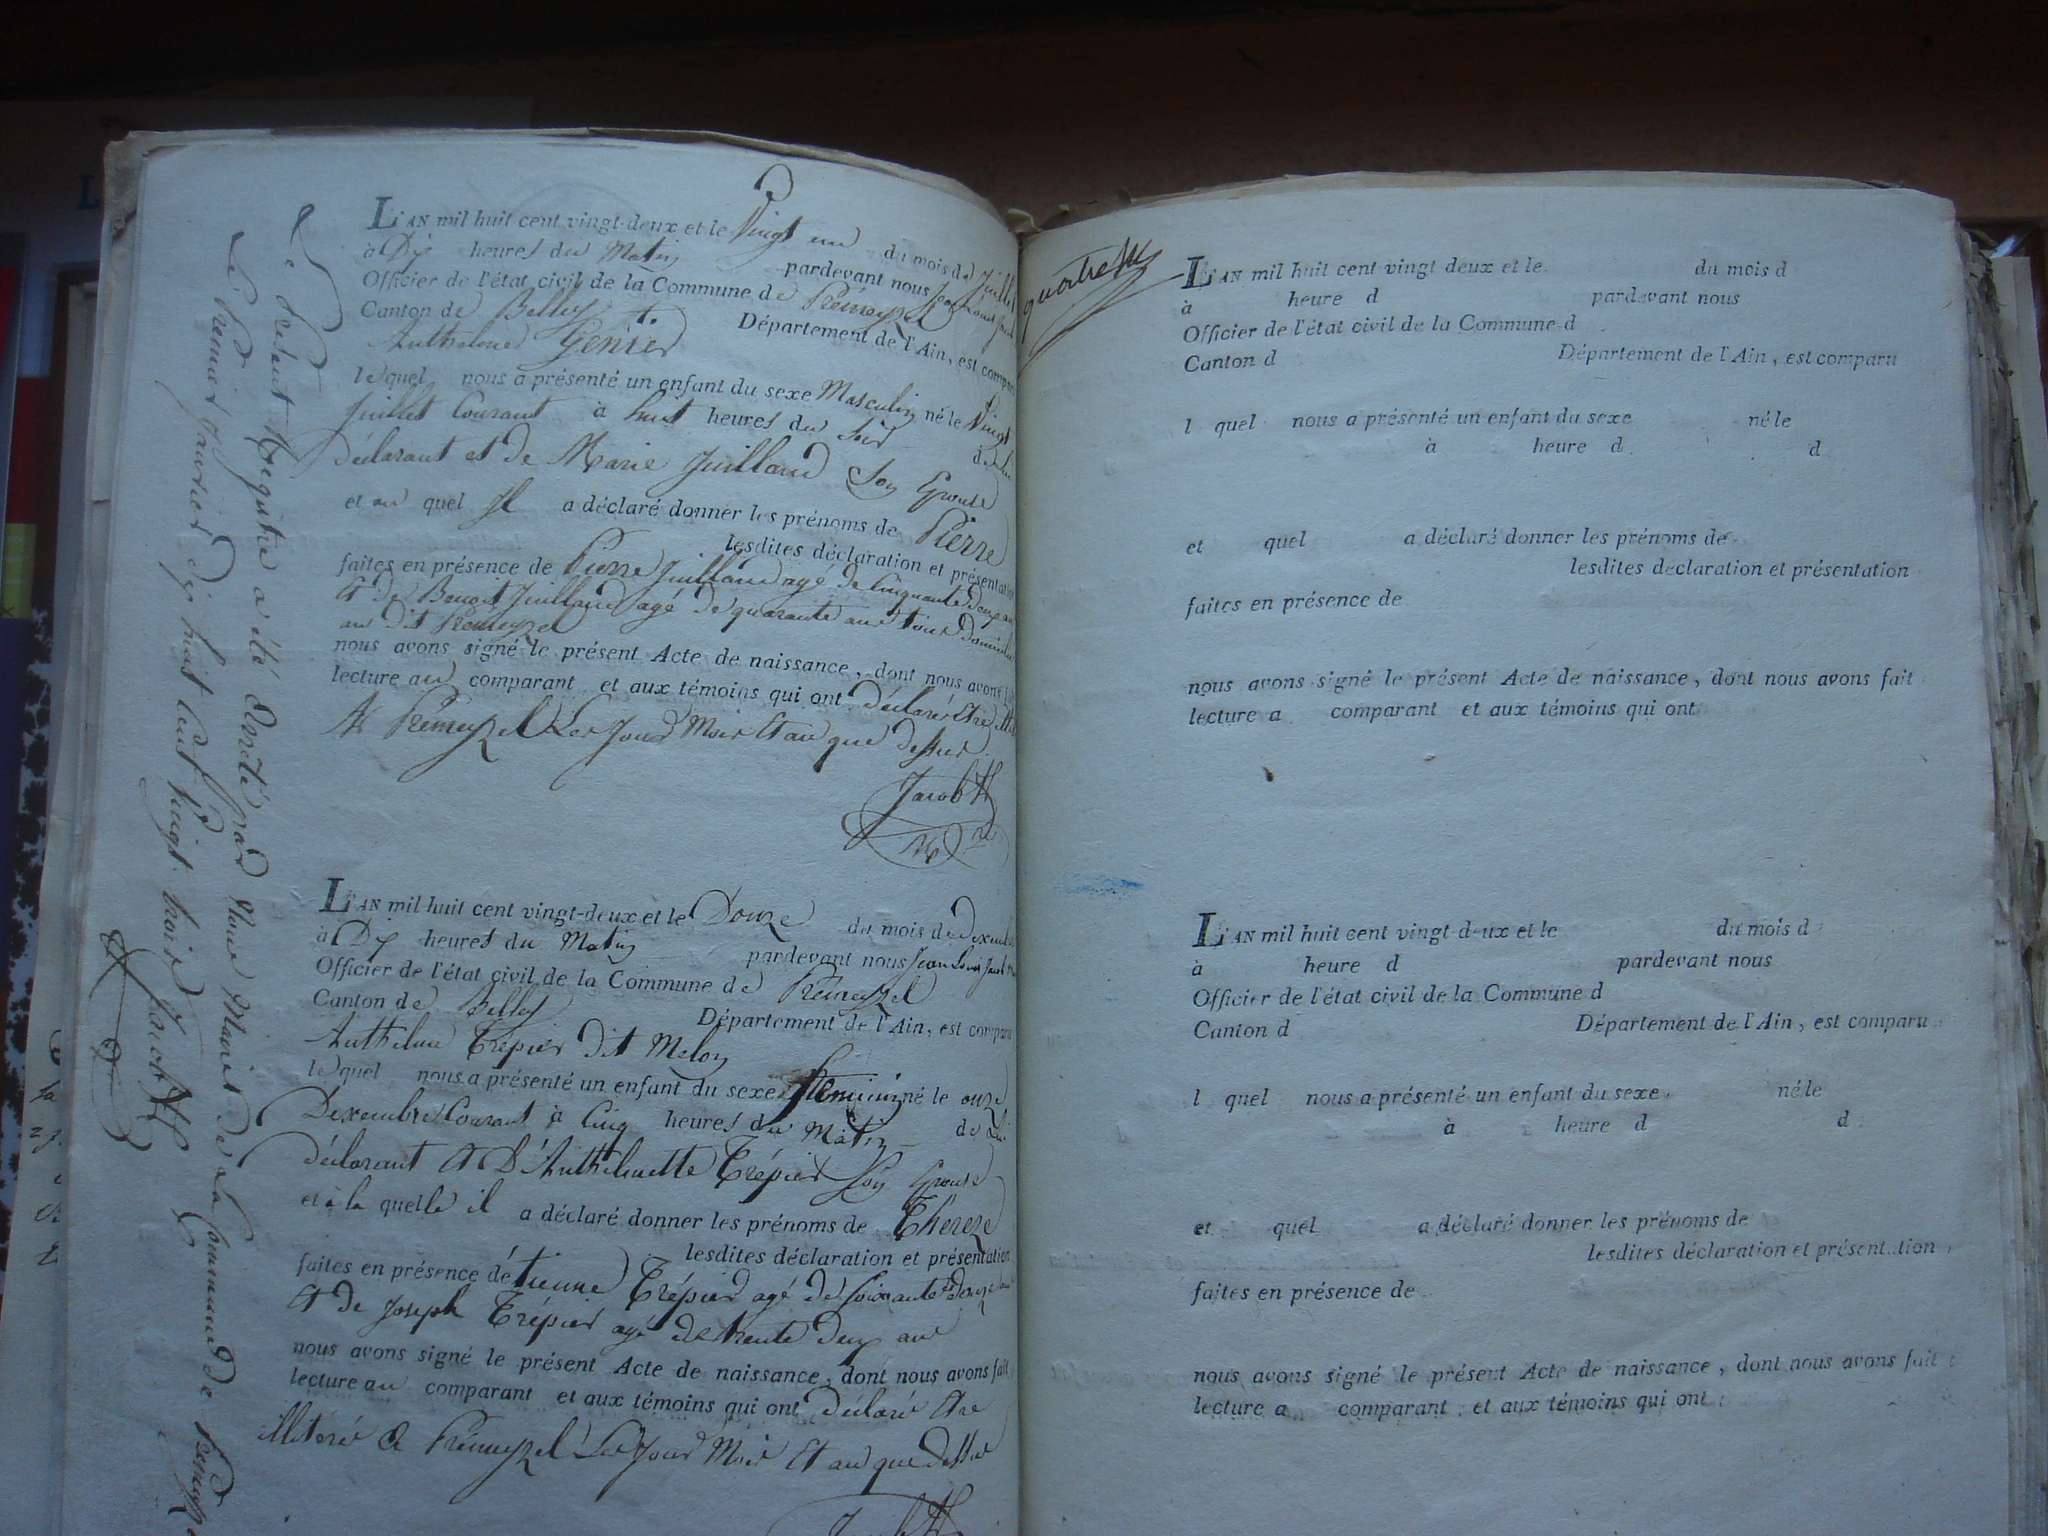 L'AN mil huit cent vingt-deux et le Vingt un du mois de Juillet
à Dix heures du Matin pardevant nous Jean Louis Jacob
Officier de l'état civil de la Commune de Prémeyzel
Canton de Belley Département de l'Ain, est comparu
Anthelme Genier
lequel nous a présenté un enfant du sexe Masculin né le Vingt
Juillet Courant à huit heures du Soir de lui
déclarant et de Marie Juilland Son Epouse
et au quel Il a déclaré donner les prénoms de Pierre
lesdites déclaration et présentation
faites en présence de Pierre Juilland agé de Cinquante deux ans
Et de Benoit Juilland agé de quarante ans tous Domiciliés
au dit Prémeyzel
nous avons signé le présent Acte de naissance, dont nous avons fait
lecture au comparant et aux témoins qui ont déclaré Etre
A Prémeyzel Les Jour Mois Et an que dessus
Jacob
L'AN mil huit cent vingt-deux et le Douze du mois de Dexembre
à Dix heures du Matin pardevant nous Jean Louis Jacob
Officier de l'état civil de la Commune de Prémeyzel
Canton de Belley Département de l'Ain, est comparu
Anthelme Trépier dit Melon
lequel nous a présenté un enfant du sexe Feminin né le onze
Dexembre Courant à Cinq heures du Matin de Lui
déclarant Et D'Anthelmette Trépier Son Epouse
et à la quelle il a déclaré donner les prénoms de Thereze
lesdites déclaration et présentation
faites en présence détienne Trépier agé de Soixante douze ans
Et de Joseph Trépier agé de trente deux ans
nous avons signé le présent Acte de naissance, dont nous avons fait
lecture au comparant et aux témoins qui ont Déclaré Etre
illiteré A Prémeyzel Les Jour Mois Et an que dessus
Jacob
Le Présent Registre a été Arrêté par Nous Maire de La Commune de Prémeyzel
Le Premier Janvier dix huit Cent Vingt trois Jacob
quatre
L'AN mil huit cent vingt deux et le du mois d
à heure d pardevant nous
Officier de l'état civil de la Commune d
Canton d Département de l'Ain, est comparu
l quel nous a présenté un enfant du sexe né le
à heure d d
et quel a déclaré donner les prénoms de
lesdites déclaration et présentation
faites en présence de
nous avons signé le présent Acte de naissance, dont nous avons fait
lecture a comparant et aux témoins qui ont
L'AN mil huit cent vingt deux et le du mois d
à heure d pardevant nous
Officier de l'état civil de la Commune d
Canton d Département de l'Ain, est comparu
l quel nous a présenté un enfant du sexe né le
à heure d d
et quel a déclaré donner les prénoms de
lesdites déclaration et présentation
faites en présence de
nous avons signé le présent Acte de naissance, dont nous avons fait
lecture a comparant et aux témoins qui ont